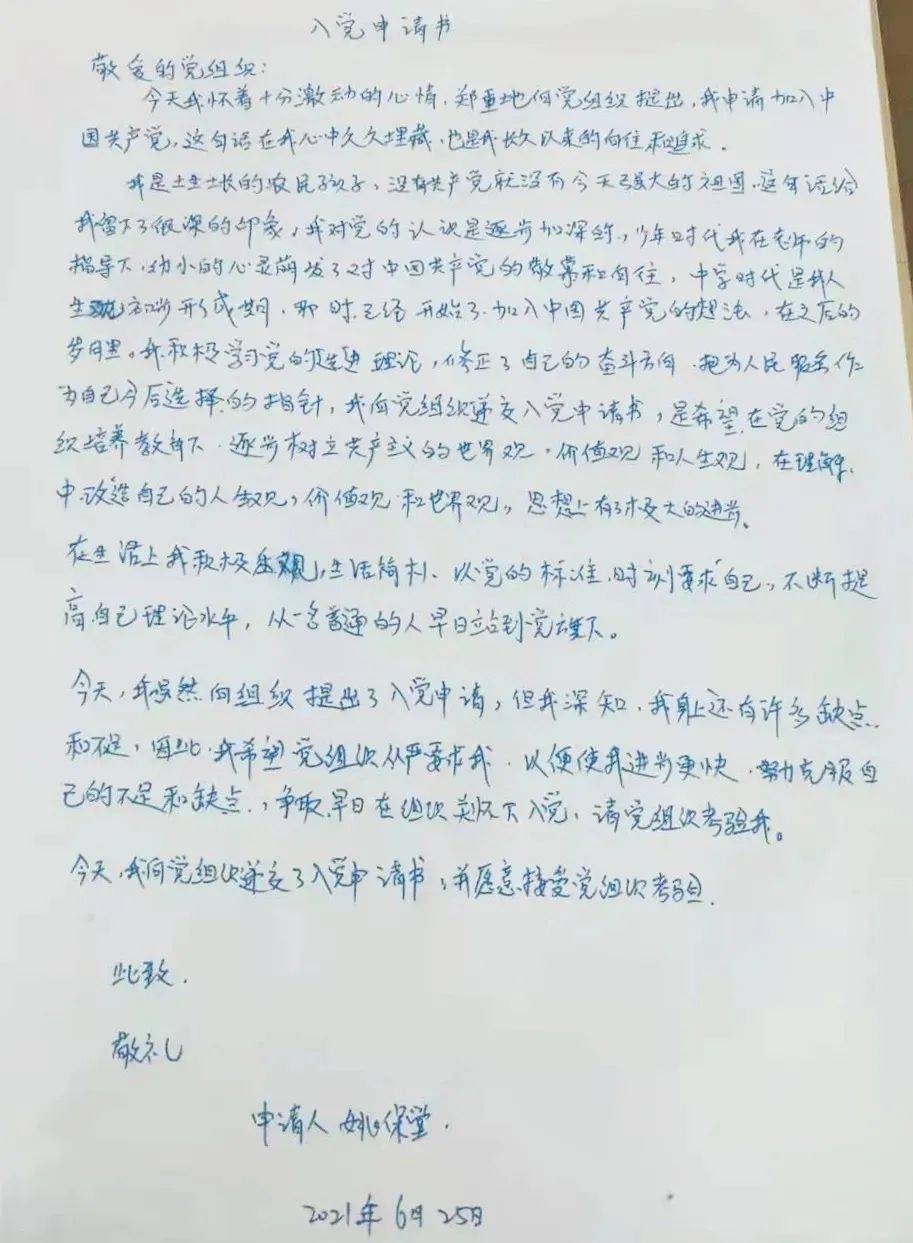 入党申请书
敬爱的党组织：
今天我怀着十分激动的心情，郑重地向党组织提出，我申请加入中
国共产党，这句话在我心中久久埋藏，也是我长久以来的向往和追求．
我是土生土长的农民孩子，没有共产党就没有今天强大的祖国，这句话给
我留下了很深的印象，我对党的认识是逐步加深的，少年时代我在老师的
指导下，幼小的心灵萌发了对中国共产党的敬慕和向往，中学时代是我人
生观初步形成期，那时已经开始了加入中国共产党的想法，在之后的
岁月里。我积极学习党的先进理论，修正了自己的奋斗方向．把为人民服务作
为自己今后选择的指针，我向党组织递交入党申请书，是希望在党的组
织培养教育下．逐步树立共产主义的世界观．价值观和人生观，在理解
中改造自己的人生观，价值观和世界观，思想上有了极大的进步。
在生活上我积极乐观，生活简朴、以党的标准时刻要求自己，不断提
高自己理论水平，从一名普通的人早日站到党旗下。
今天，我虽然向组织提出了入党申请，但我深知，我身上还有许多缺点
和不足，因此，我希望党组织从严要求我．以便使我进步更快．努力克服自
己的不足和缺点，争取早日在组织关怀下入党，请党组织考验我。
今天，我向党组织递交了入党申请书，并愿意接受党组织考验．
此致．
敬礼
申请人 姚保堂．
2021年6月25日